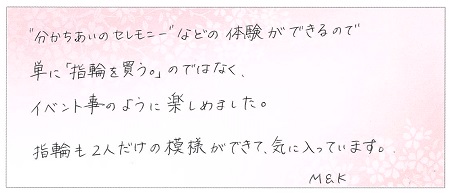 "分かちあいのセレモニー"などの体験ができるので
単に「指輪を買う。」のではなく、
イベント事のように楽しめました。
指輪も2人だけの模様ができて、気に入っています。
M&K